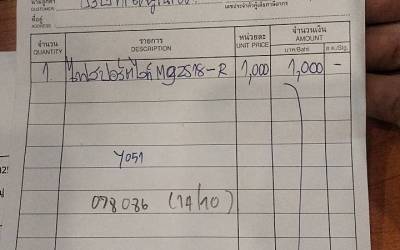 นามลูกค้า
CUSTOMER
เลขประจำตัวผู้เสียภาษีอากร
ที่อยู่
ADDRESS
จำนวน รายการ หน่วยละ จำนวนเงิน
QUANTITY DESCRIPTION UNIT PRICE AMOUNT
บาท/Baht ส.ต./Stg.
1 ไฟสปอร์ตไลท์ MG2518-R 1,000 1,000 -
Y051
078036 (14/10)